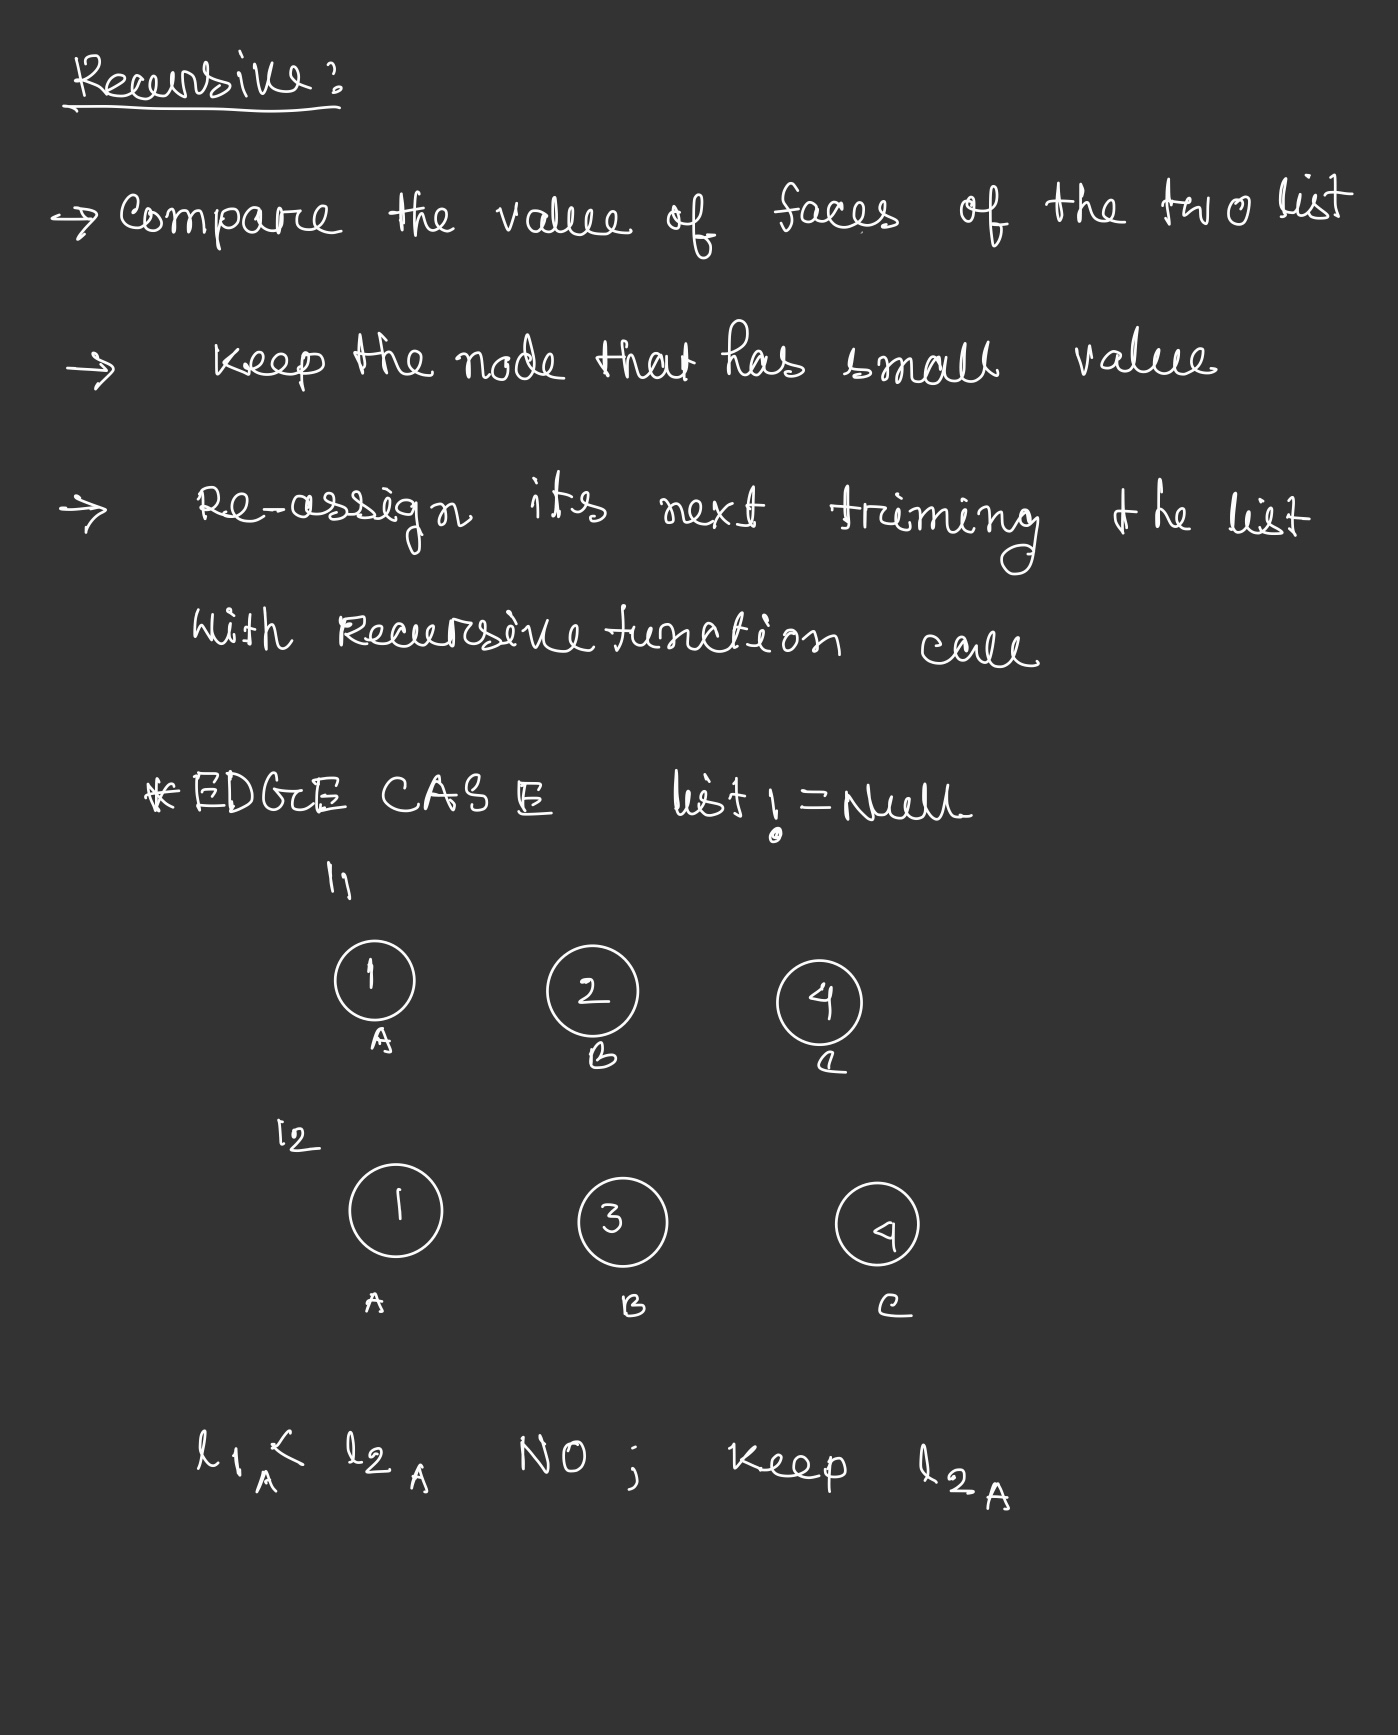 Recursive:
→ Compare the value of faces of the two list
→ Keep the node that has small value
→ Re-assign its next triming the list
with Recursive function call
* EDGE CASE list != Null
l1
1 2 4
A B C
l2
1 3 4
A B C
l1A < l2A NO ; Keep l2A